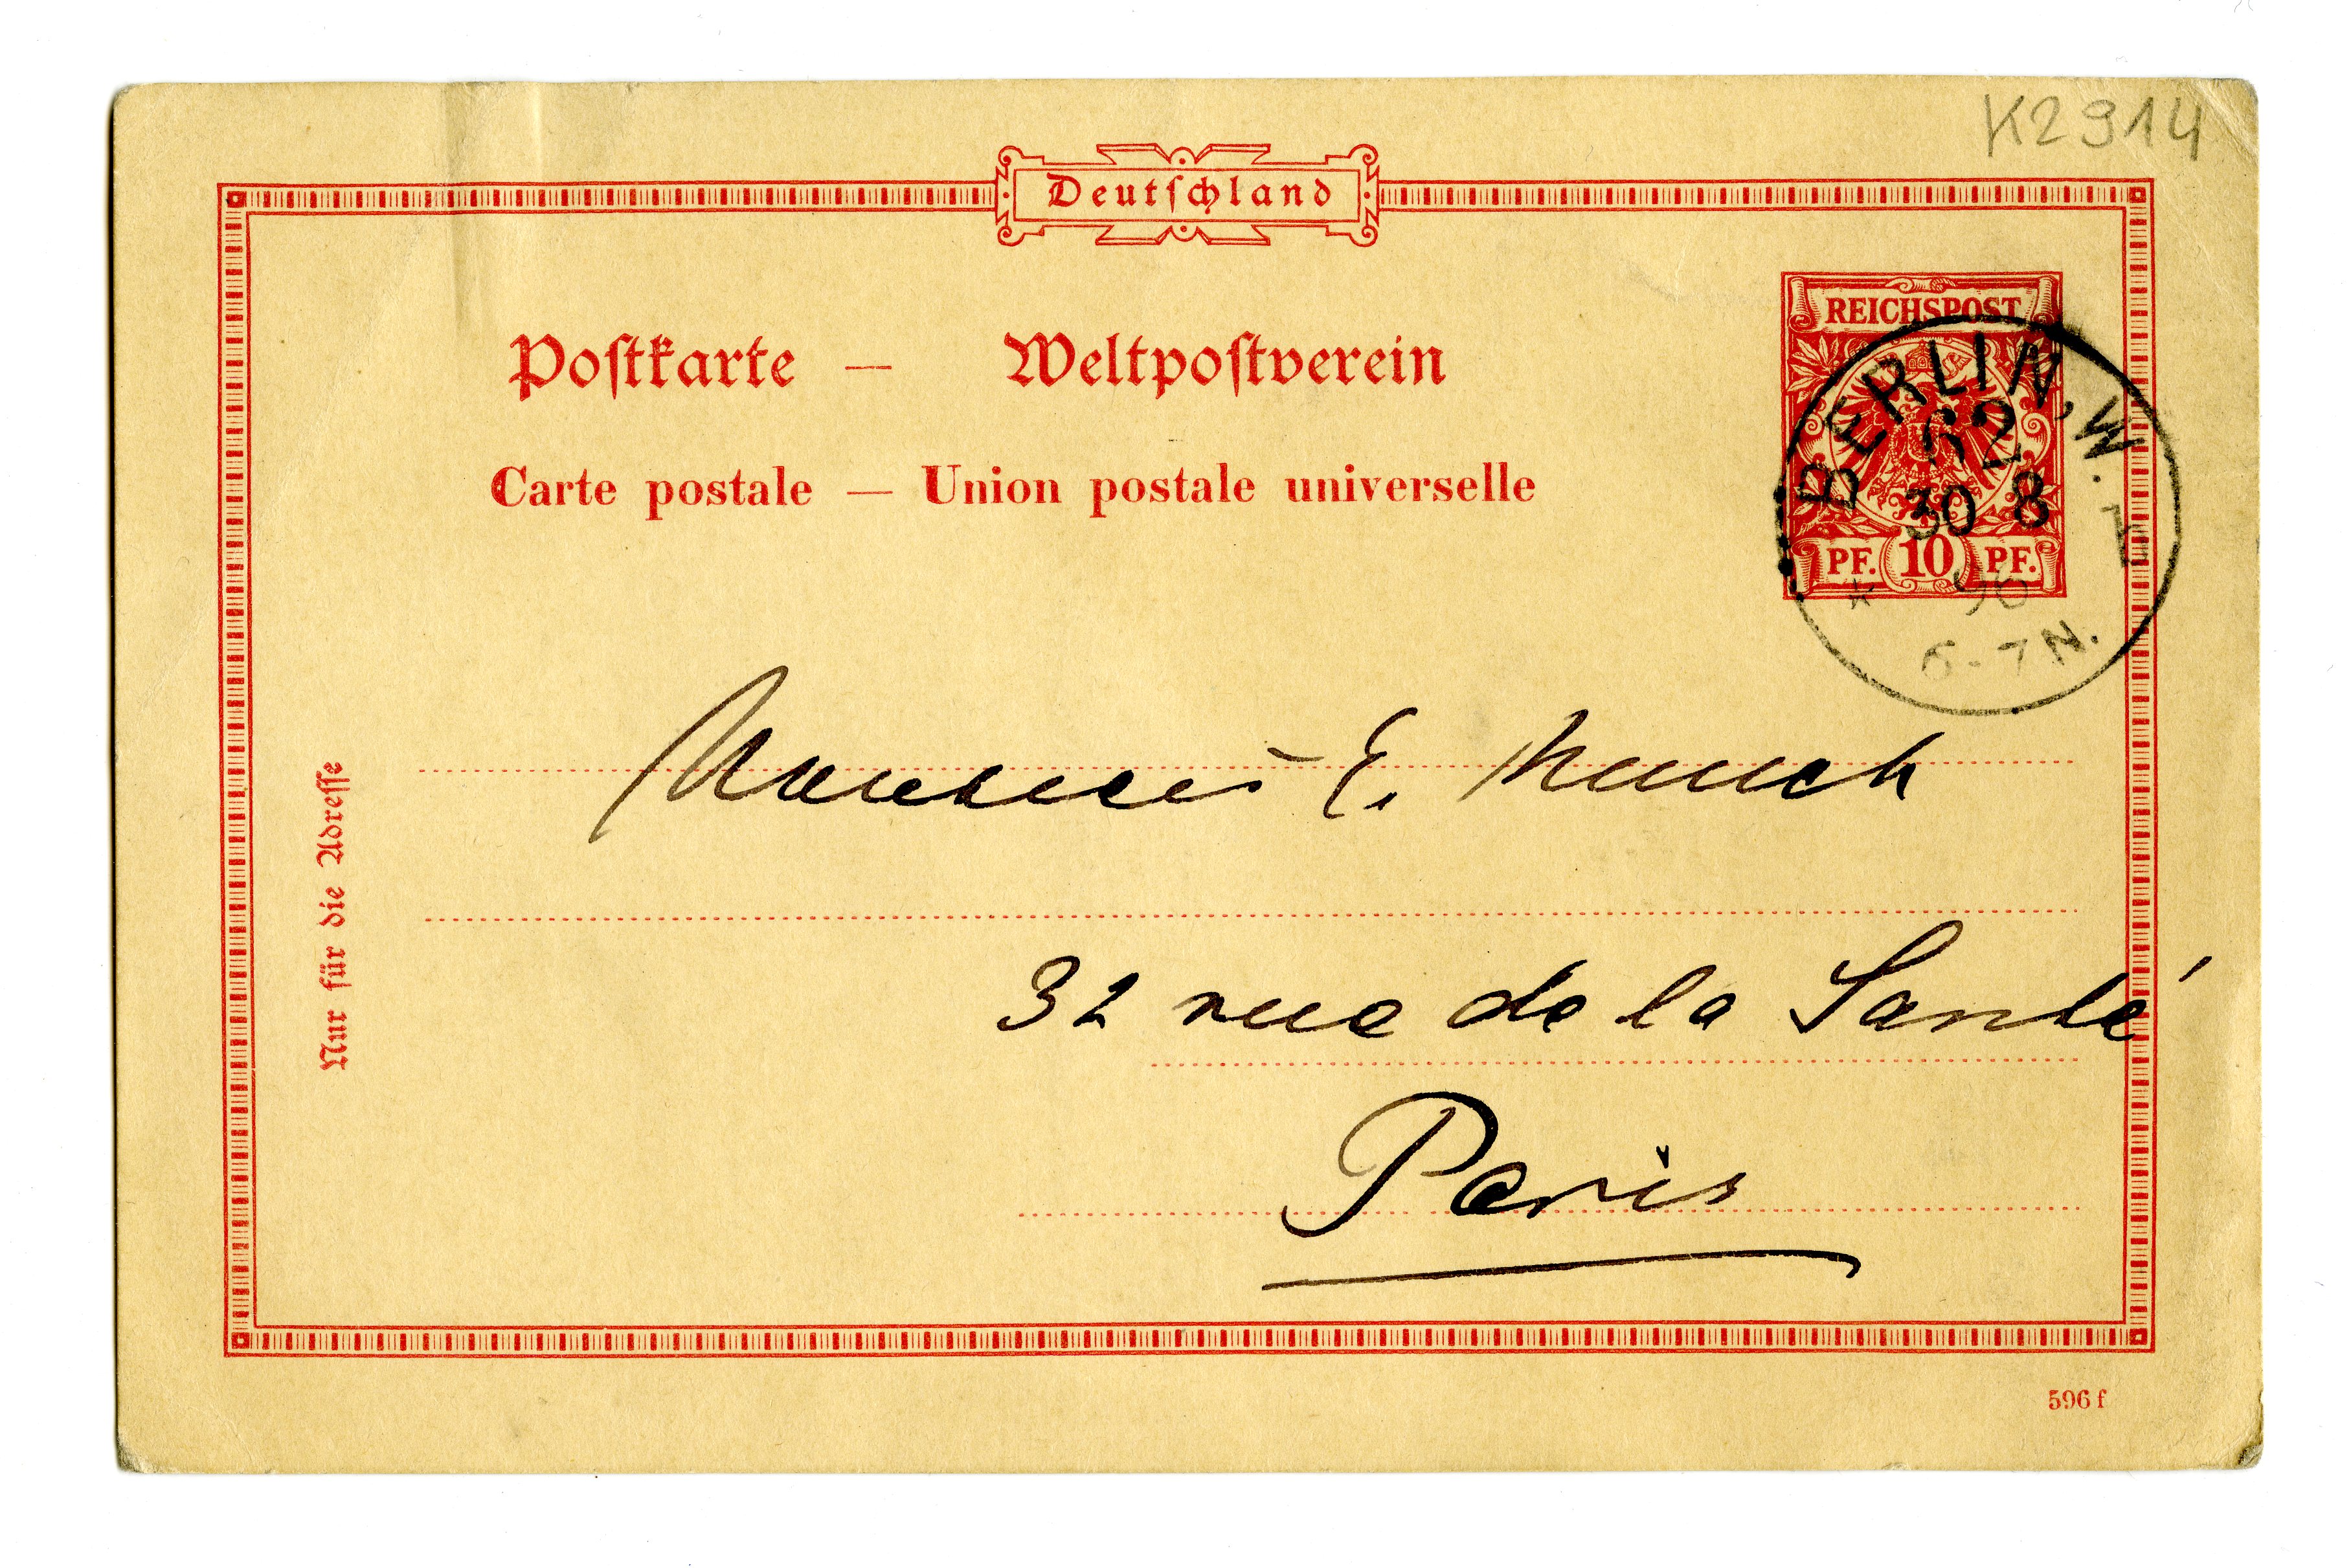 K2914
Deutſchland
REICHSPOST
BERLIN, W.
62
30 8
96
6-7N.
PF. 10 PF.
Poſtkarte — Weltpoſtverein
Carte postale — Union postale universelle
Nur für die Adreſſe
Monsieur E. Munch
32 rue de la Santé
Paris
596 f